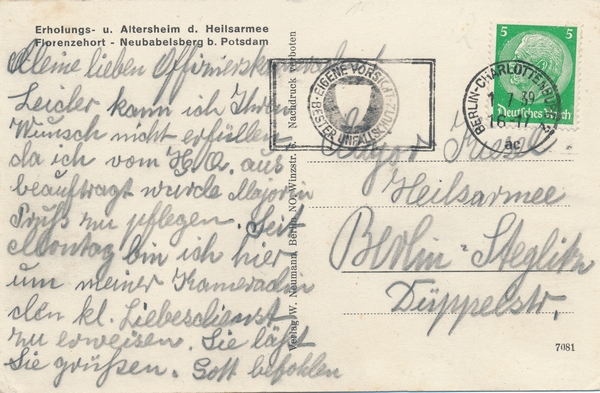 Erholungs- u. Altersheim d. Heilsarmee
Florenzehort - Neubabelsberg b. Potsdam
Meine lieben Offizierskameraden!
Leider kann ich Ihren
Wunsch nicht erfüllen
da ich vom H.Q. aus
beauftragt wurde Majorin
zu pflegen. Seit
Montag bin ich hier
um meiner Kameradin
den kl. Liebesdienst
zu erweisen. Sie läßt
Sie grüßen. Gott befohlen
Verlag W. Neumann, Berlin NO, Winzstr. Nachdruck verboten
EIGENE VORSICHT
BESTER UNFALLSCHUTZ
5 5
Deutsches Reich
BERLIN-CHARLOTTENBURG
7.39
ac
Major
Heilsarmee
Berlin-Steglitz
Düppelstr.
7081